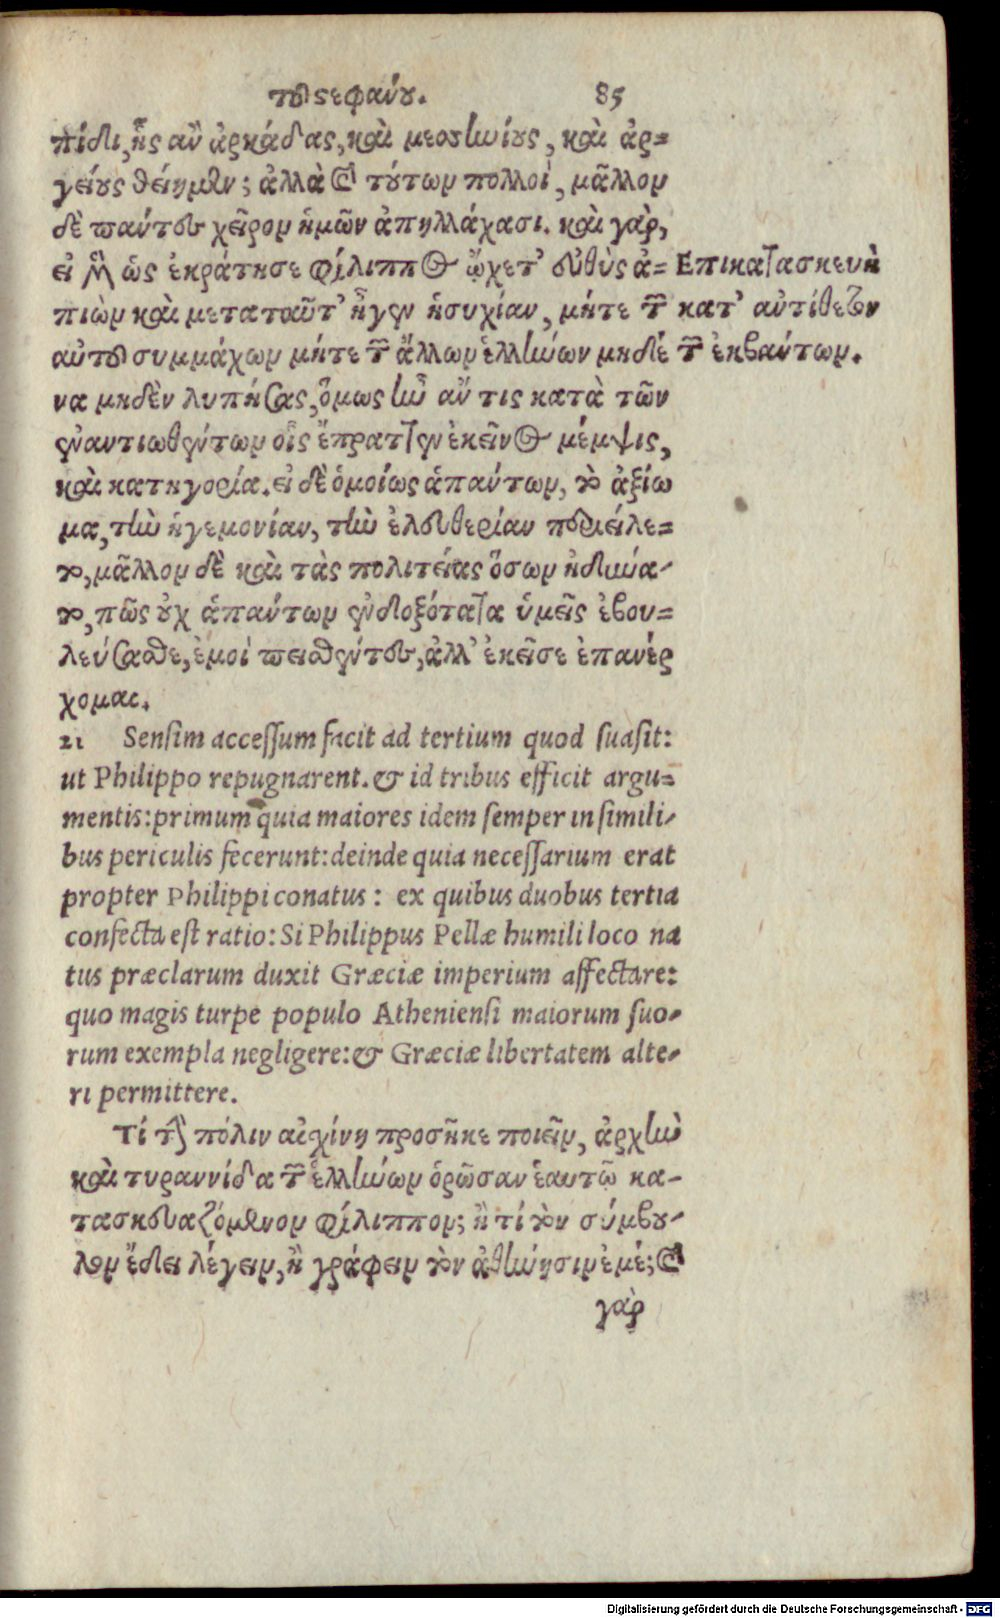 τοῦ στεφάνου. 85
πίδι, ἧς ἂν ἀρκάδας, καὶ μεσσηνίους, καὶ ἀρ=
γείους θείημεν; ἀλλὰ καὶ τούτων πολλοὶ, μᾶλλον
δὲ πάντες χεῖρον ἡμῶν ἀπηλλάχασι. καὶ γὰρ,
εἰ μὲν ὡς ἐκράτησε φίλιππος ᾤχετ' εὐθὺς ἀ=
πιὼν καὶ μεταταῦτ' ἦγεν ἡσυχίαν, μήτε τῶν
αὐτοῦ συμμάχων μήτε τῶν ἄλλων ἑλλήνων μηδέ
να μηδὲν λυπήσας, ὅμως ἦν ἄν τις κατὰ τῶν
ἐναντιωθέντων οἷς ἔπραττεν ἐκεῖνος μέμψις,
καὶ κατηγορία. εἰ δὲ ὁμοίως ἁπάντων, τὸ ἀξίω
μα, τὴν ἡγεμονίαν, τὴν ἐλευθερίαν περιείλε=
το, μᾶλλον δὲ καὶ τὰς πολιτείας ὅσων ἠδύνα-
το, πῶς οὐχ ἁπάντων ἐνδοξότατα ὑμεῖς ἐβου=
λεύσασθε, ἐμοὶ πεισθέντες, ἀλλ' ἐκεῖσε ἐπανέρ
χομαι.
Επικατασκευὴ
κατ' αὐτίθεσιν
τῶν ἐκβάντων.
21 Sensim accessum facit ad tertium quod suasit:
ut Philippo repugnarent. & id tribus efficit argu=
mentis: primum quia maiores idem semper in simili-
bus periculis fecerunt: deinde quia necessarium erat
propter Philippi conatus: ex quibus duobus tertia
confecta est ratio: Si Philippus Pellæ humili loco na
tus præclarum duxit Græciæ imperium affectare:
quo magis turpe populo Atheniensi maiorum suo-
rum exempla negligere: & Græciæ libertatem alte-
ri permittere.
Τί τὴν πόλιν αἰσχίνη προσῆκε ποιεῖν, ἀρχὴν
καὶ τυραννίδα τῶν ἑλλήνων ὁρῶσαν ἑαυτῷ κα-
τασκευαζόμενον φίλιππον; ἢ τί τὸν σύμβου-
λον ἔδει λέγειν, ἢ γράφειν τὸν ἀθήνησιν ἐμέ; καὶ
γὰρ
Digitalisierung gefördert durch die Deutsche Forschungsgemeinschaft - DFG